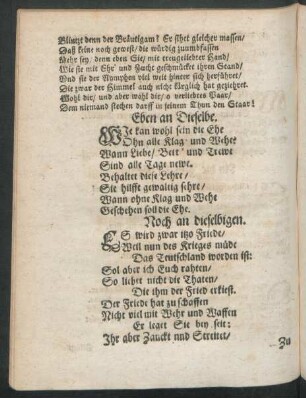 Blintzt denn der Bräutigam? Er sihet gleicher massen/
Daß keine noch gewest/die würdig zuumbfassen
Mehr sey/denn eben Sie/mit treugeliebter Hand/
Wie sie mit Ehr' und Zucht geschmücket ihren Stand/
Und sie der Nymphen viel weit hinter sich herführet/
Die zwar der Himmel auch nicht kärglich hat gezieret.
Wohl dir/ und aber wohl dir/o verliebtes Paar/
Dem niemand stechen darff in seinem Thun den Staar!
Eben an Dieselbe.
WIe kan wohl sein die Ehe
Ohn alle Klag' und Wehe?
Wann Liebe/ Bett' und Trewe
Sind alle Tage newe.
Behaltet diese Lehre/
Sie hilfft gewaltig sehre/
Wann ohne Klag und Weht
Geschehen soll die Ehe.
Noch an dieselbigen.
ES wird zwar itzo Friede/
Weil nun des Krieges müde
Das Teutschland worden ist:
Sol aber ich Euch rahten/
So liebet nicht die Thaten/
Die ihm der Fried erkiest.
Der Friede hat zuschaffen
Nicht viel mit Wehr und Waffen
Er leget Sie bey seit:
Ihr aber Zanckt und Streitet/
Zu